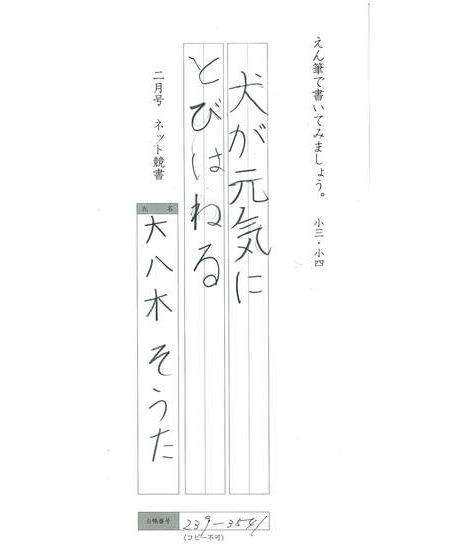 えん筆で書いてみましょう。 小三・小四
犬が元気に
とびはねる
二月号 ネット競書
氏 名
大八木そうた
台帳番号 239-3541
(コピー不可)